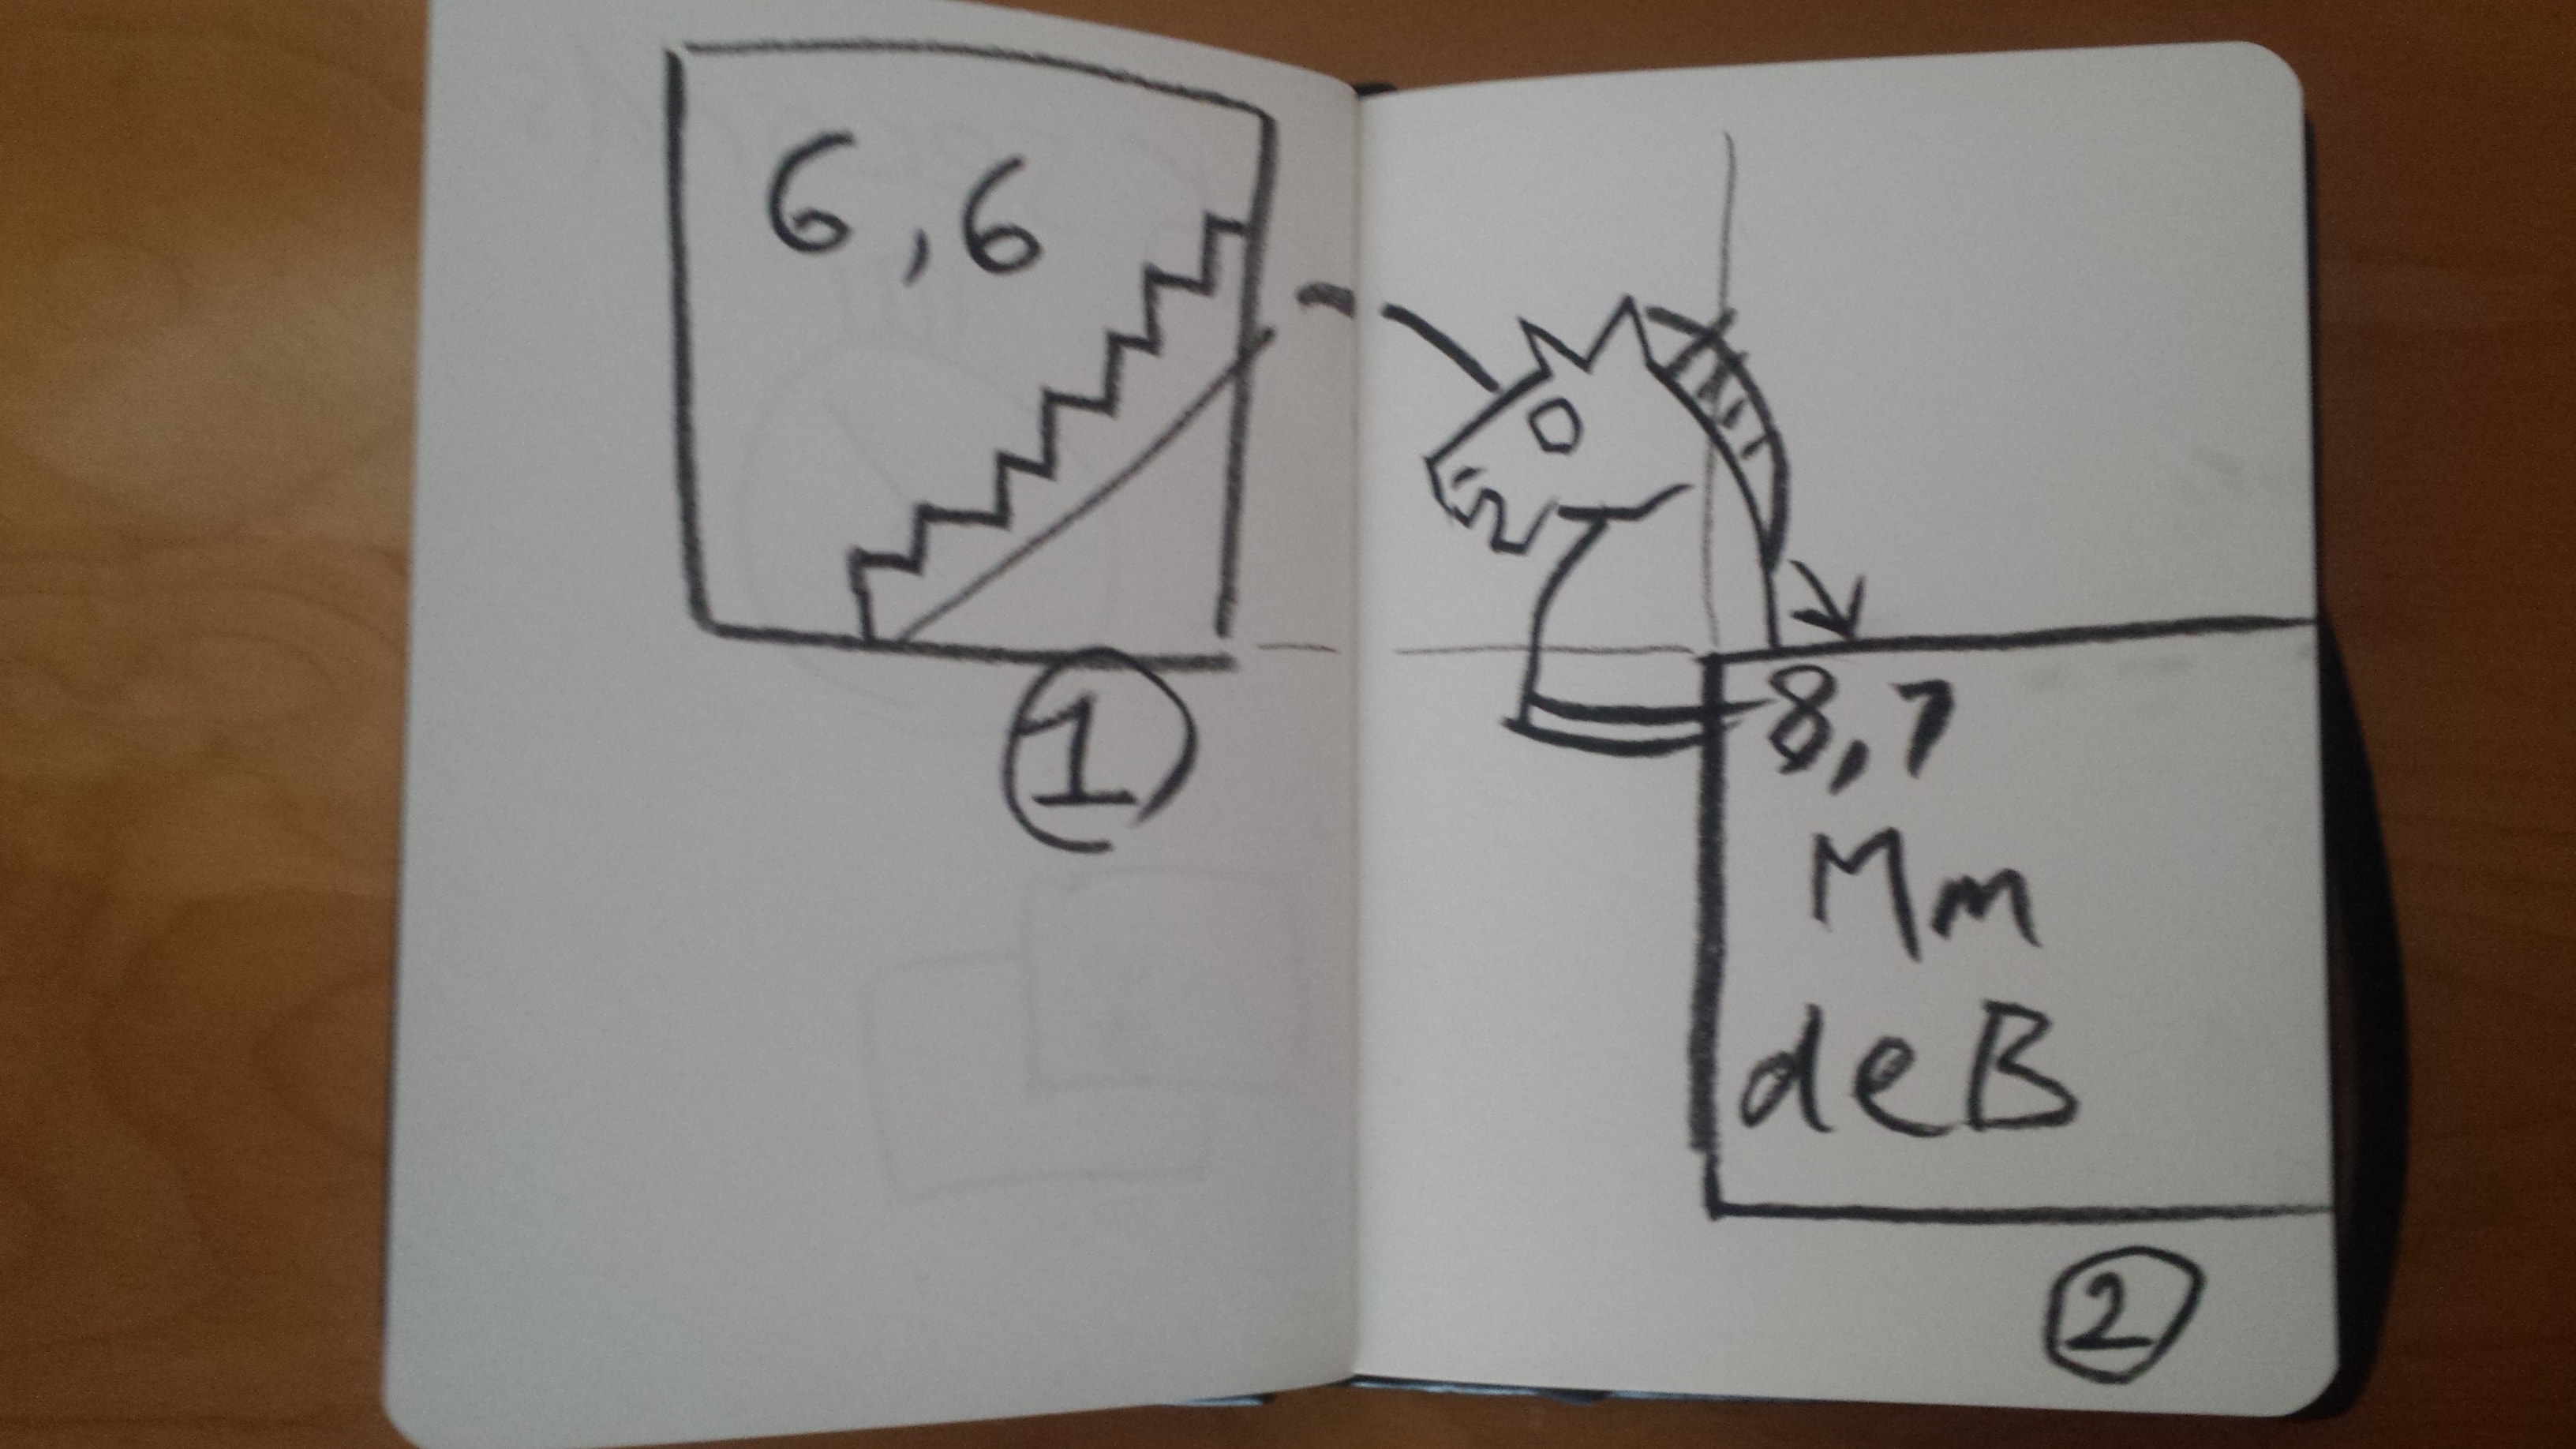 6,6
1
8,7
Mm
deB
2